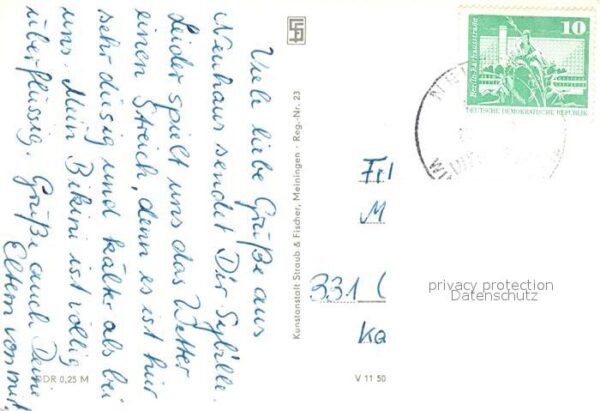 Viele liebe Grüße aus
Neuhaus sendet Dir Sybille.
Leider spielt uns das Wetter
einen Streich, denn es ist hier
sehr dusig und kälter als bei
uns. Mein Bikini ist völlig
überflüssig. Grüße auch Deine
Eltern von mir
DDR 0,25 M
Kunstanstalt Straub & Fischer, Meiningen · Reg.-Nr. 23
V 11 50
10
Berlin-Rathausstraße
DEUTSCHE DEMOKRATISCHE REPUBLIK
Frl
M
331
Ka
privacy protection
Datenschutz